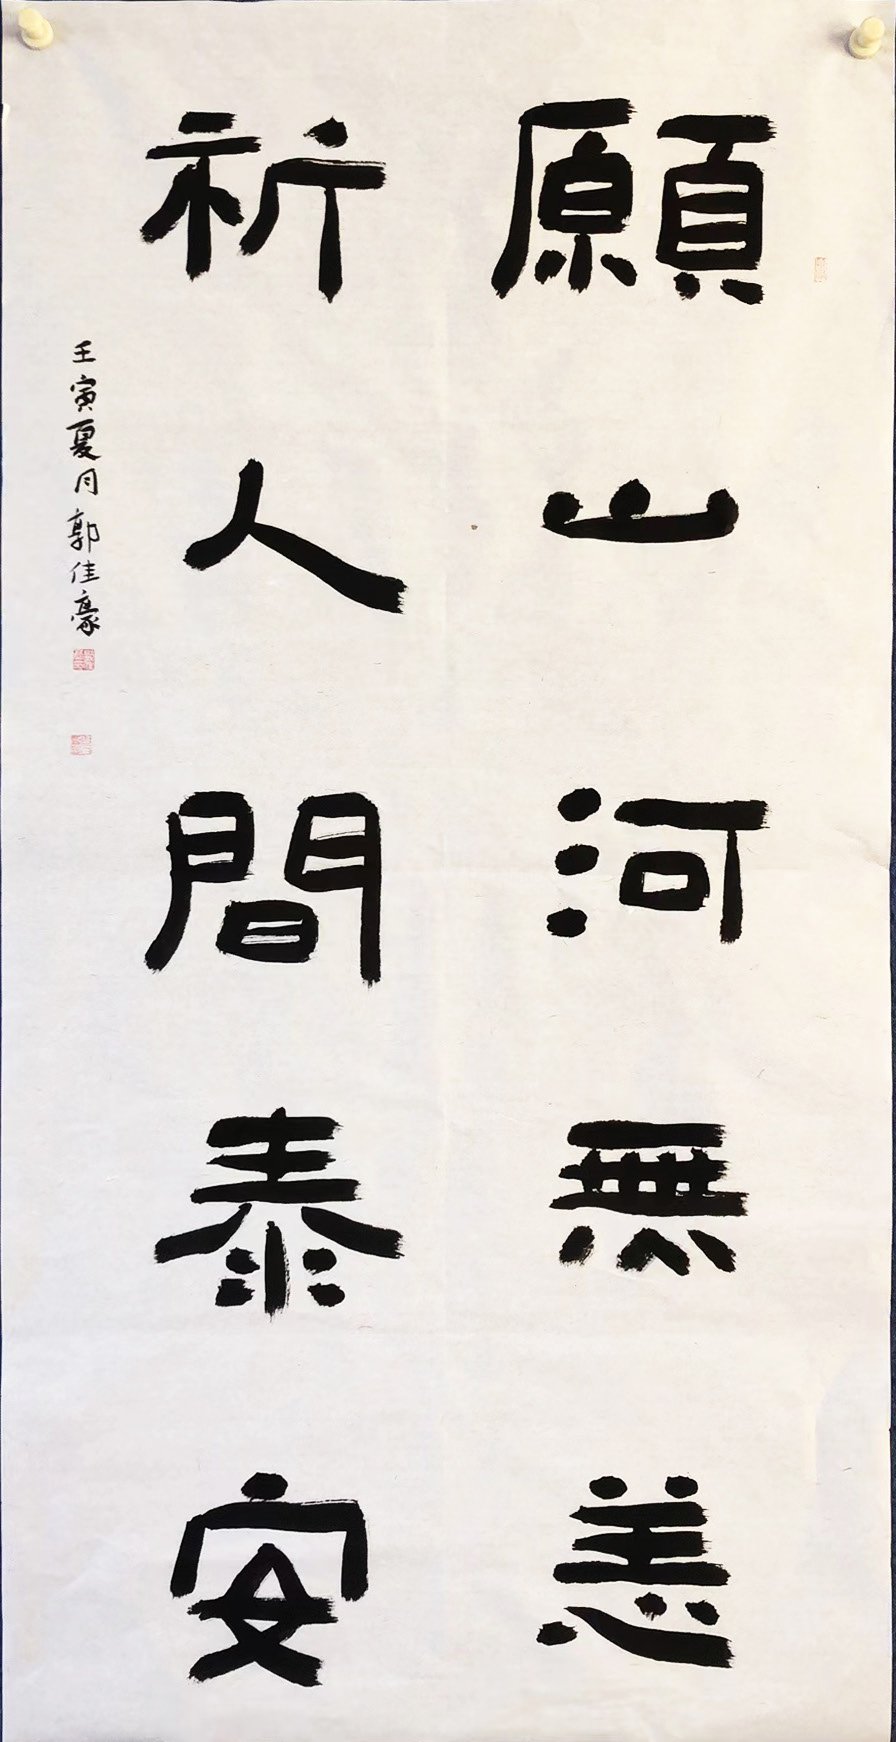 願山河無恙
祈人間泰安
壬寅夏月郭佳豪